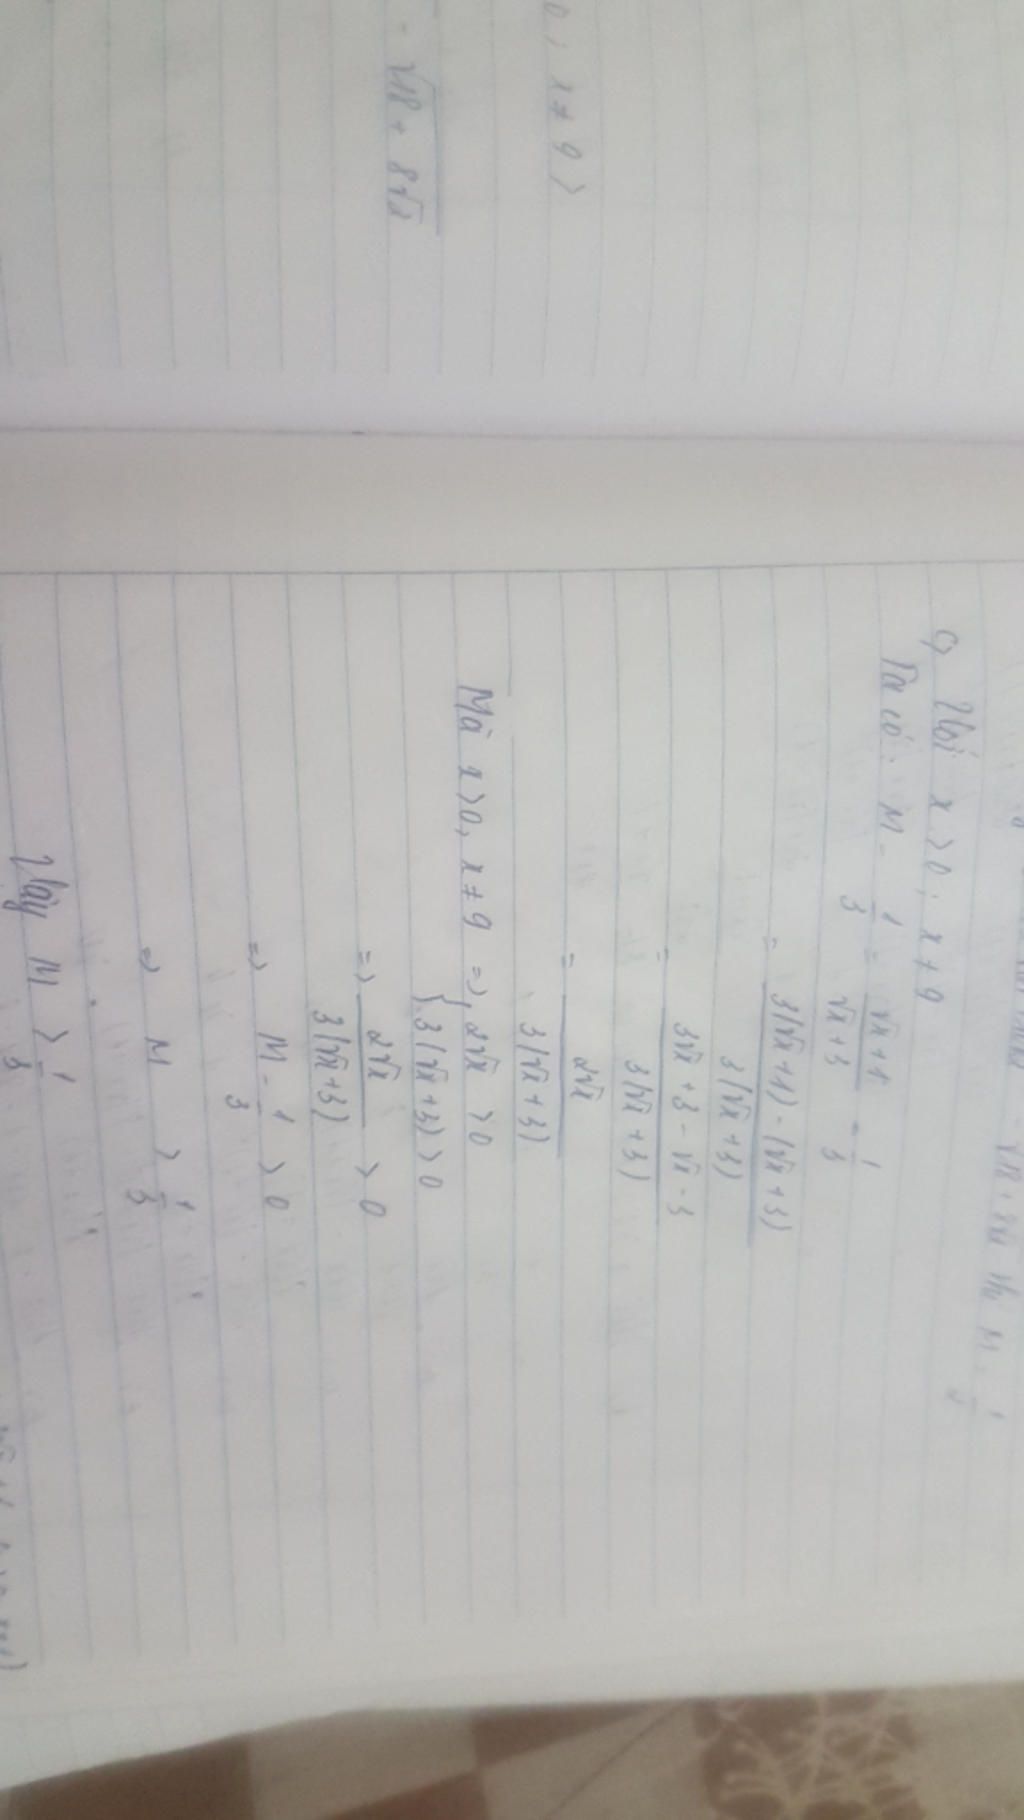 0 ; x ≠ 9 >
- √18 + 8√2
- √18 + 8√2 thì M = 1/3
c, Với x > 0 ; x ≠ 9
Ta có : M - 1/3 = (√x + 1)/(√x + 3) - 1/3
= (3(√x + 1) - (√x + 3))/(3(√x + 3))
= (3√x + 3 - √x - 3)/(3(√x + 3))
= 2√x/(3(√x + 3))
Mà x > 0, x ≠ 9 => { 2√x > 0
3(√x + 3) > 0
=> 2√x/(3(√x + 3)) > 0
=> M - 1/3 > 0
=> M > 1/3
Vậy M > 1/3